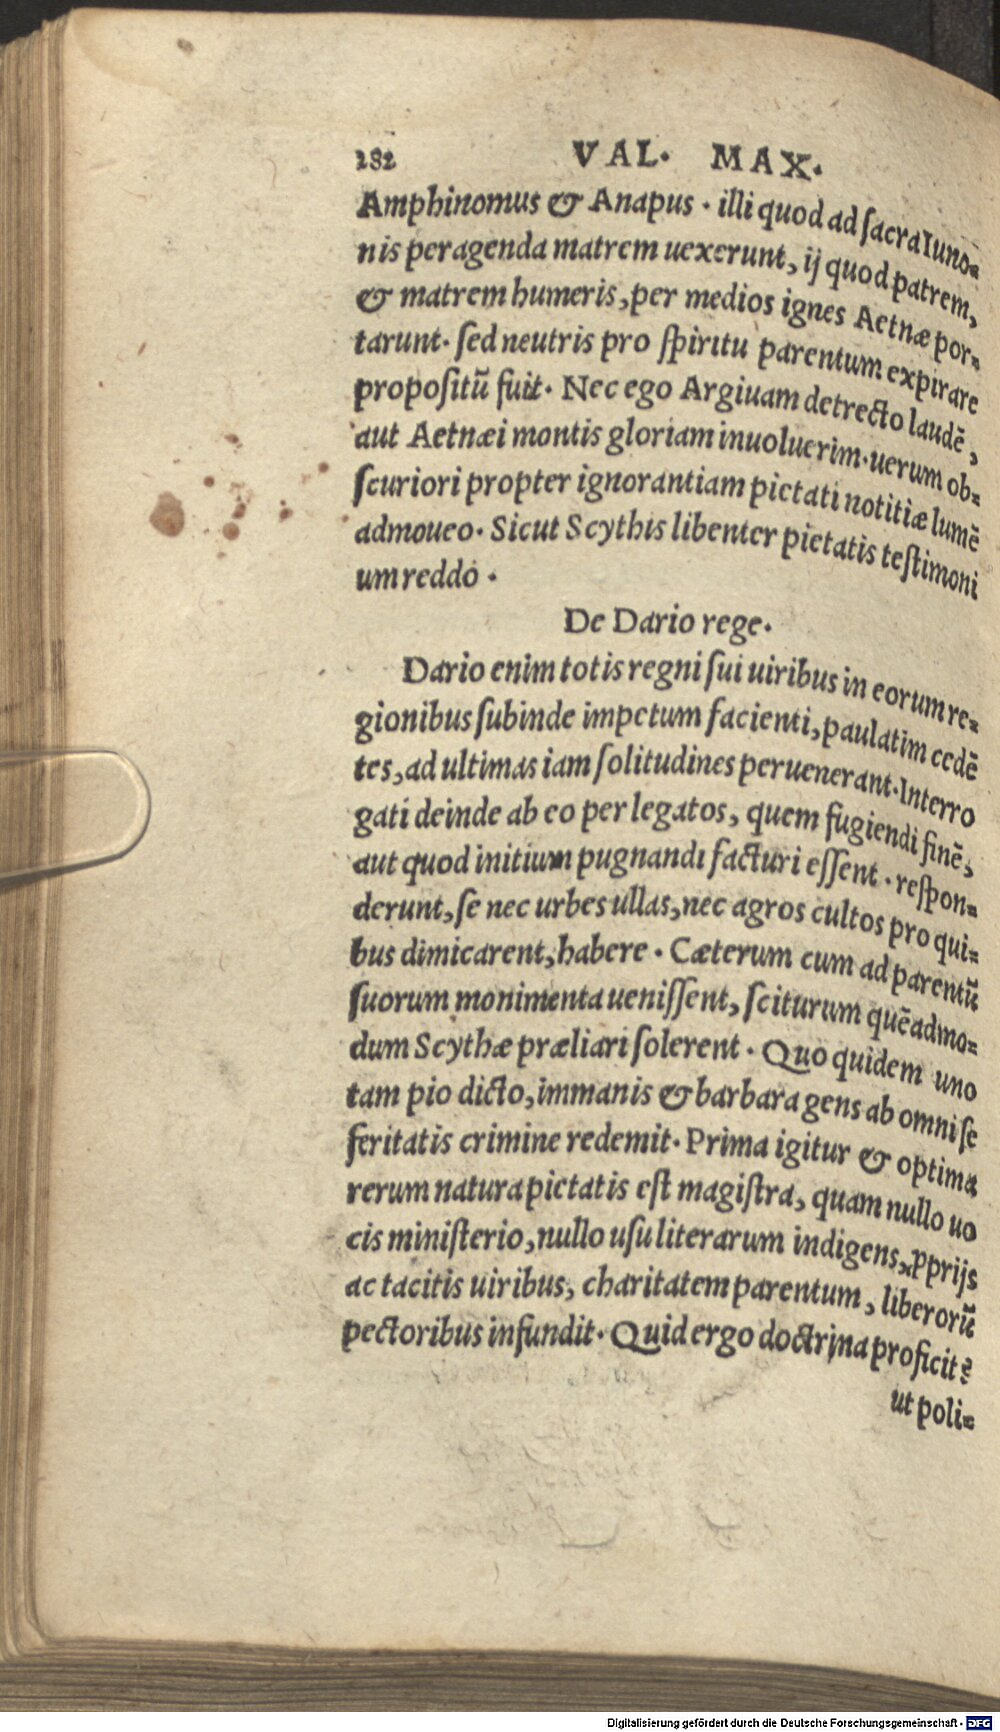 282 VAL. MAX.
Amphinomus & Anapus. illi quod ad ſacra Iuno-
nis peragenda matrem uexerunt, ij quod patrem,
& matrem humeris, per medios ignes Aetnæ por-
tarunt. ſed neutris pro ſpiritu parentum expirare
propoſitũ fuit. Nec ego Argiuam detrecto laudẽ,
aut Aetnæi montis gloriam inuoluerim. uerum ob-
ſcuriori propter ignorantiam pietati notitiæ lumẽ
admoueo. Sicut Scythis libenter pietatis teſtimoni
um reddo.
De Dario rege.
Dario enim totis regni ſui uiribus in eorum re-
gionibus ſubinde impetum facienti, paulatim cedẽ
tes, ad ultimas iam ſolitudines peruenerant. Interro
gati deinde ab eo per legatos, quem fugiendi finẽ,
aut quod initium pugnandi facturi eſſent. reſpon-
derunt, ſe nec urbes ullas, nec agros cultos pro qui-
bus dimicarent, habere. Cæterum cum ad parentũ
ſuorum monimenta ueniſſent, ſciturum quẽadmo-
dum Scythæ præliari ſolerent. Quo quidem uno
tam pio dicto, immanis & barbara gens ab omni ſe
feritatis crimine redemit. Prima igitur & optima
rerum natura pietatis eſt magiſtra, quam nullo uo
cis miniſterio, nullo uſu literarum indigens, ꝓprijs
ac tacitis uiribus, charitatem parentum, liberorũ
pectoribus infundit. Quid ergo doctrina proficit?
ut poli-
Digitalisierung gefördert durch die Deutsche Forschungsgemeinschaft - DFG